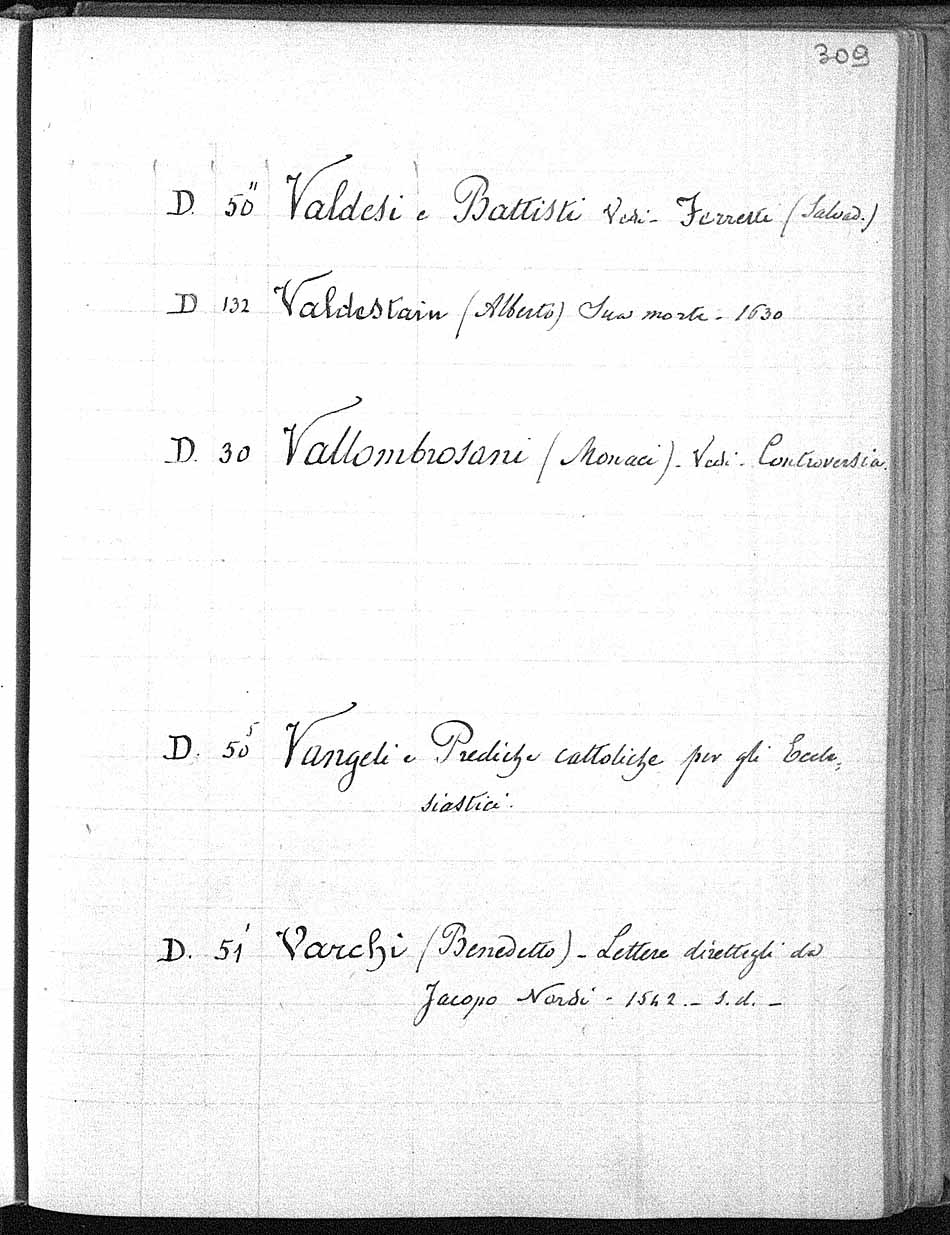 309
D. 50" Valdesi e Battisti Vedi - Ferretti (Salvad.)
D 132 Valdestain (Alberto) Sua morte - 1630
D. 30 Vallombrosani (Monaci) - Vedi - Controversia.
D. 50⁵ Vangeli e Prediche cattoliche per gli Eccle=
siastici.
D. 51' Varchi (Benedetto) - Lettere direttegli da
Jacopo Nardi - 1542 - s.d. -